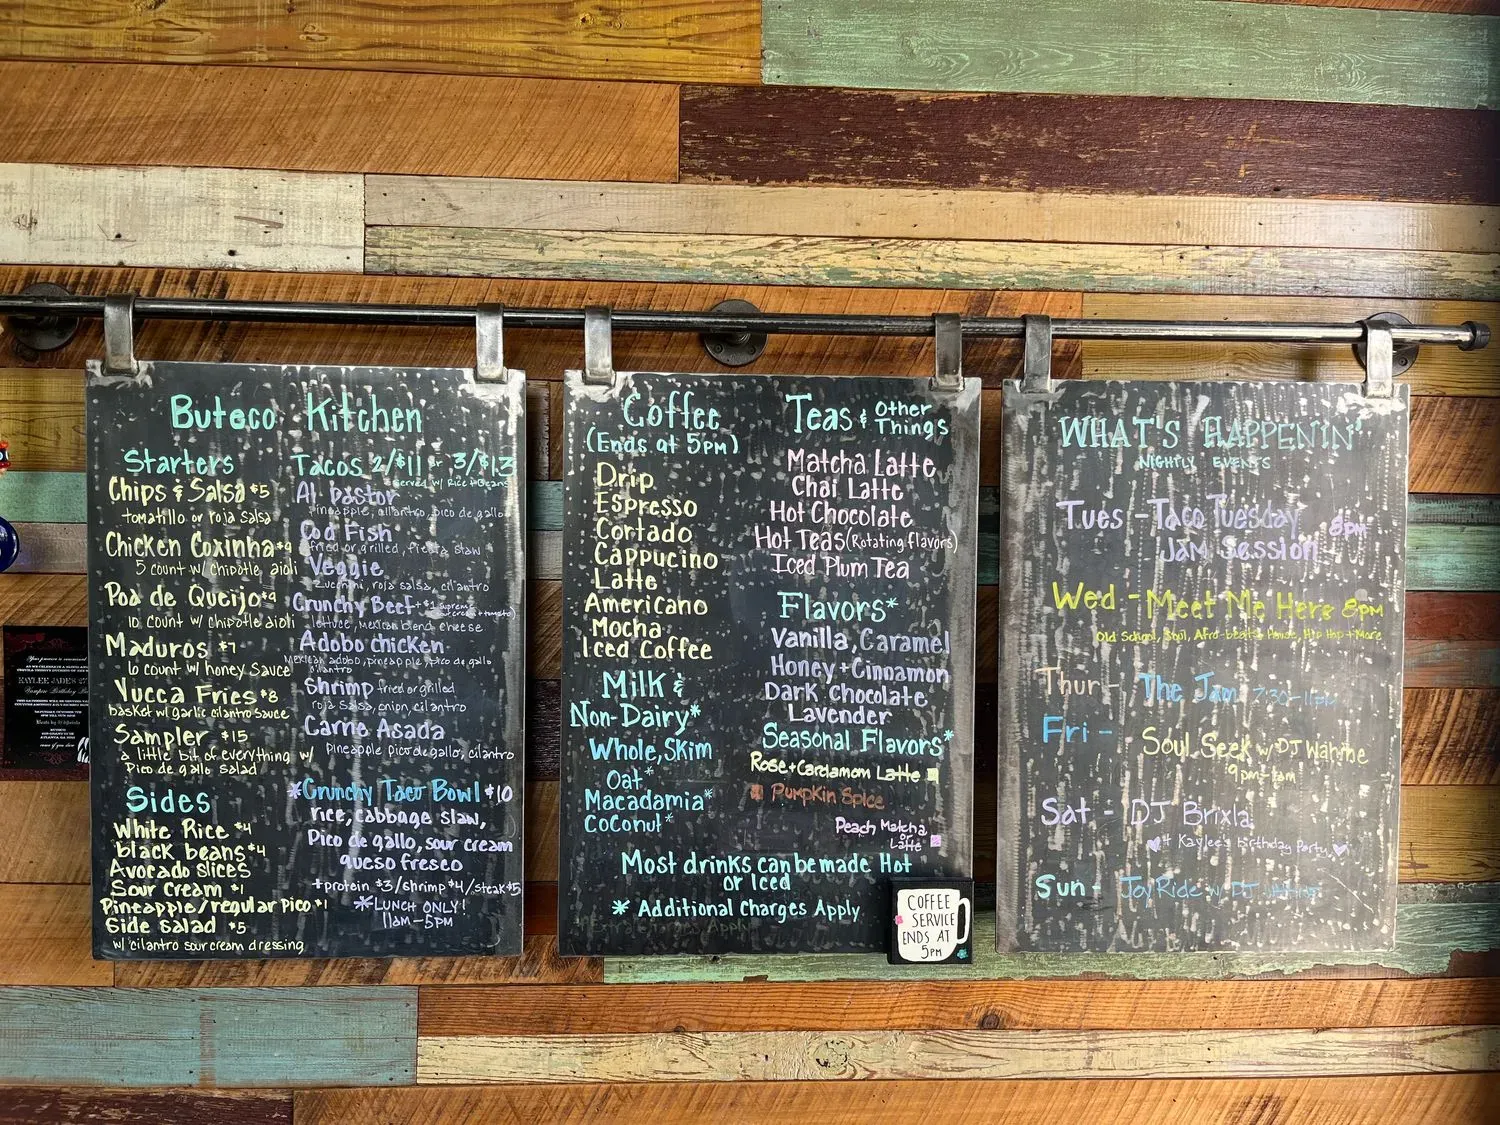 Buteco Kitchen
Starters
Chips & Salsa $5
tomatillo or roja salsa
Chicken Coxinha $9
5 count w/ chipotle aioli
Poa de Queijo $9
10 count w/ chipotle aioli
Maduros $7
10 count w/ honey sauce
Yucca Fries $8
basket w/ garlic cilantro sauce
Sampler $15
a little bit of everything w/
Pico de gallo salad
Sides
White Rice $4
black beans $4
Avocado slices
Sour Cream $1
Pineapple/regular Pico $1
Side Salad $5
w/ cilantro sour cream dressing
Tacos 2/$11 or 3/$13
served w/ Rice + Beans
Al pastor
Pineapple, cilantro, pico de gallo
Cod Fish
fried or grilled, fiesta slaw
Veggie
Zucchini, roja salsa, cilantro
Crunchy Beef +$1 supreme
lettuce, mexican blend cheese
Adobo chicken
Mexican adobo, pineapple, pico de gallo
cilantro
Shrimp fried or grilled
roja Salsa, onion, cilantro
Carne Asada
Pineapple pico de gallo, cilantro
*Crunchy Taco Bowl $10
rice, cabbage slaw,
Pico de gallo, sour cream
queso fresco
+protein $3/shrimp $4/steak $5
*LUNCH ONLY!
11am-5PM
Coffee
(Ends at 5PM)
Drip
Espresso
Cortado
Cappucino
Latte
Americano
Mocha
Iced Coffee
Milk &
Non-Dairy*
Whole, Skim
Oat*
Macadamia*
Coconut*
Teas & Other
Things
Matcha Latte
Chai Latte
Hot Chocolate
Hot Teas (Rotating flavors)
Iced Plum Tea
Flavors*
Vanilla, Caramel
Honey + Cinnamon
Dark Chocolate
Lavender
Seasonal Flavors*
Rose + Cardamom Latte
Pumpkin Spice
Peach Matcha
or
Latte
Most drinks can be made Hot
or Iced
* Additional Charges Apply
COFFEE
SERVICE
ENDS AT
5PM
WHAT'S HAPPENIN'
NIGHTLY EVENTS
Tues - Taco Tuesday 8pm
Jam Session
Wed - Meet Me Here 8pm
Old School, Soul, Afro-beats, House, Hip Hop + More
Thur - The Jam 7:30-11pm
Fri - Soul Seek w/ DJ Wahine
9pm-1am
Sat - DJ Brixla
+ Kaylee's Birthday Party
Sun - Joy Ride w DJ
KAYLEE JADE'S 27